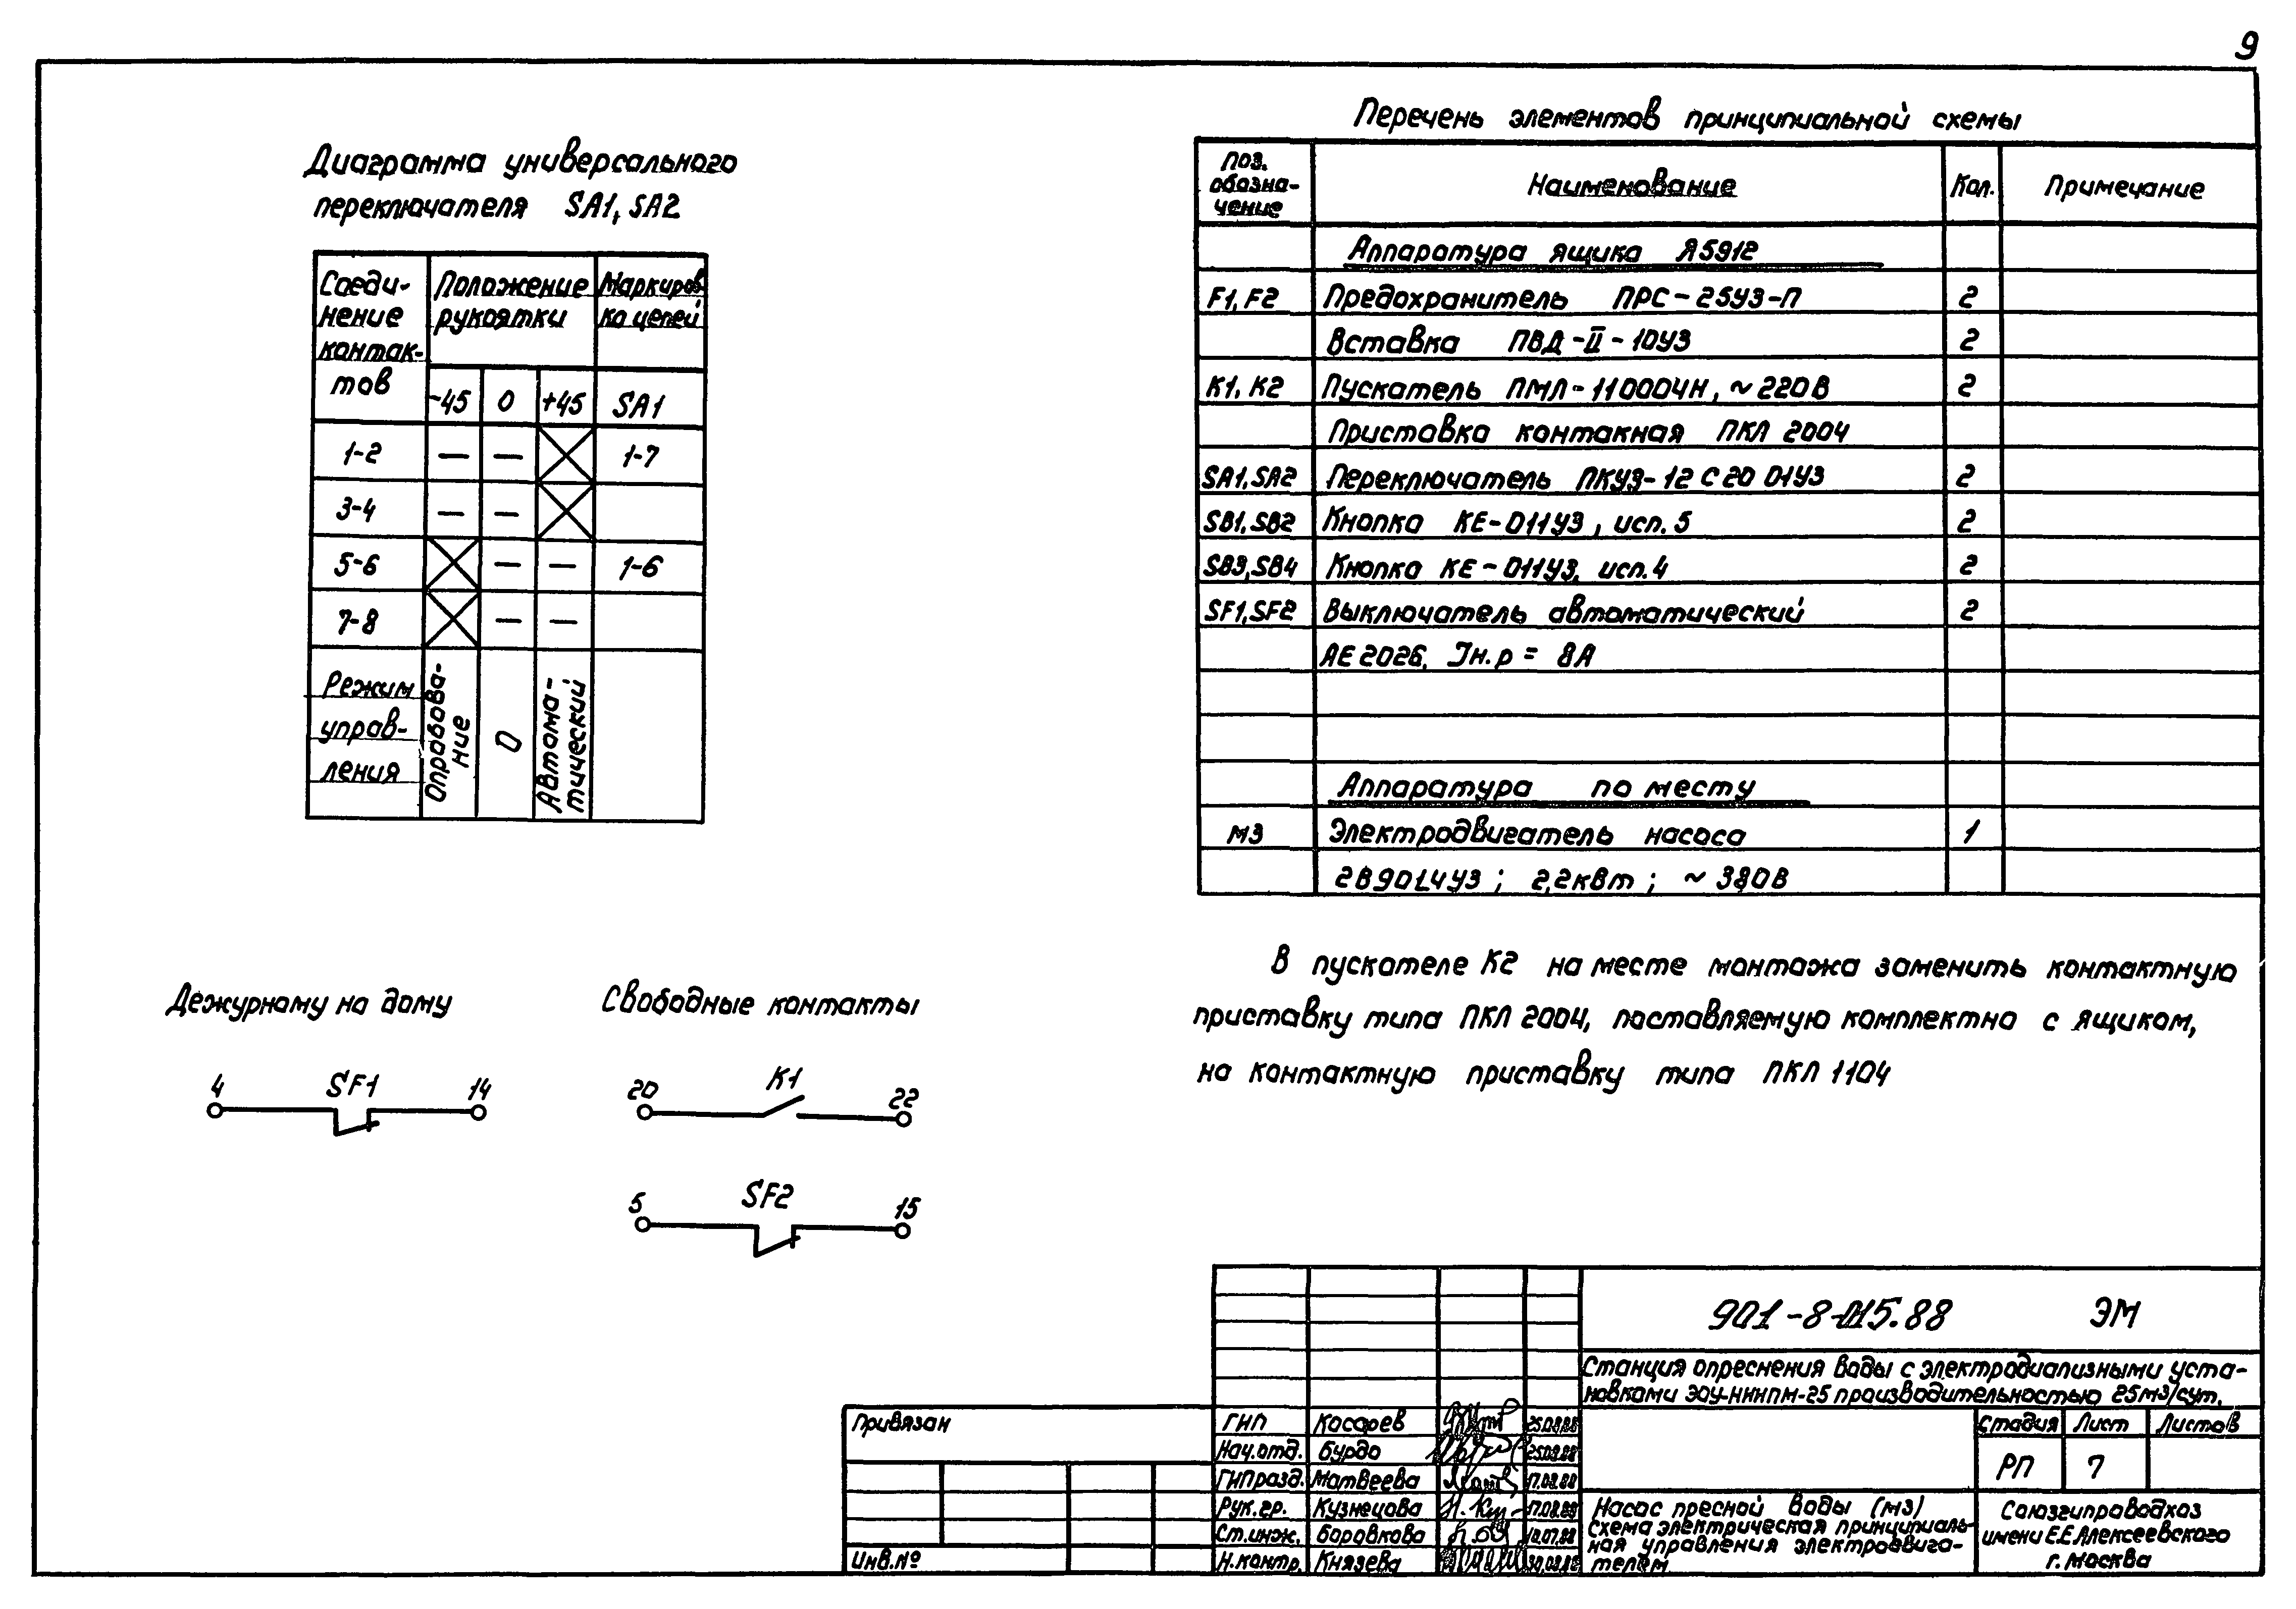 9
Диаграмма универсального
переключателя SA1, SA2
Соеди-
нение
контак-
тов
Положение
рукоятки
Маркиров-
ка цепей
-45 0 +45 SA1
1-2 — — 1-7
3-4 — —
5-6 — — 1-6
7-8 — —
Режим
управ-
ления
Опробова-
ние
0
Автома-
тический
Перечень элементов принципиальной схемы
Поз.
обозна-
чение
Наименование Кол. Примечание
Аппаратура ящика Я5912
F1, F2 Предохранитель ПРС-25У3-П 2
Вставка ПВД-II-10У3 2
К1, К2 Пускатель ПМЛ-110004Н, ~220В 2
Приставка контакная ПКЛ 2004
SA1, SA2 Переключатель ПКУ3-12 С 20 01У3 2
SB1, SB2 Кнопка КЕ-011У3, исп. 5 2
SB3, SB4 Кнопка КЕ-011У3, исп. 4 2
SF1, SF2 Выключатель автоматический 2
АЕ 2026, Iн.р = 8А
Аппаратура по месту
М3 Электродвигатель насоса 1
2В90L4У3; 2,2квт; ~380В
В пускателе К2 на месте монтажа заменить контактную
приставку типа ПКЛ 2004, поставляемую комплектно с ящиком,
на контактную приставку типа ПКЛ 1104
Дежурному на дому
4 SF1 14
Свободные контакты
20 К1 22
5 SF2 15
901-8-015.88 ЭМ
Станция опреснения воды с электродиализными уста-
новками ЭОУ-НИИПМ-25 производительностью 25м3/сут.
Привязан
Инв.№
ГИП Косарев 25.08.88
Нач.отд. Бурдо 25.08.88
ГИП разд. Матвеева 17.08.88
Рук.гр. Кузнецова 17.08.88
Ст.инж. Боровкова 18.07.88
Н.контр. Князева 30.08.88
Стадия Лист Листов
РП 7
Насос пресной воды (М3)
Схема электрическая принципиаль-
ная управления электродвига-
телем
Союзгипроводхоз
имени Е.Е.Алексеевского
г. Москва